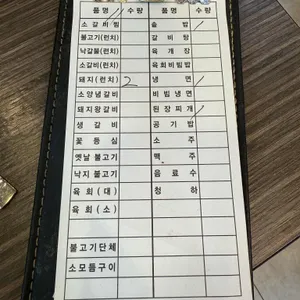 품명 수량 품명 수량
소갈비찜 솥밥
불고기(런치) 갈비탕
낙갈불(런치) 육개장
소갈비(런치) 육회비빔밥
돼지(런치) 2 냉면
소양념갈비 비빔냉면
돼지왕갈비 된장찌개
생갈비 공기밥
꽃등심 소주
옛날불고기 맥주
낙지불고기 음료수
육회(대) 청하
육회(소)
불고기단체
소모듬구이